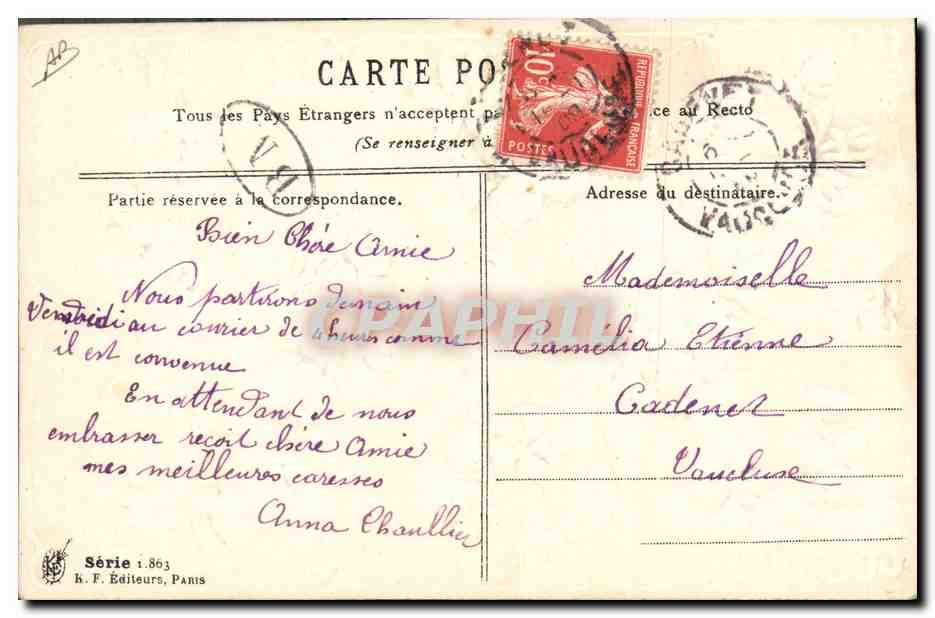 AB
CARTE PO
Tous les Pays Étrangers n'acceptent pa ce au Recto
(Se renseigner à
10
REPUBLIQUE FRANÇAISE
POSTES
VAUCLUSE
CADENET
VAUCLUSE
BM
Partie réservée à la correspondance.
Adresse du destinataire.
Bien Chére Amie
Nous partirons demain
Vendredi au courier de 4 heures comme
il est convenue
En attendant de nous
embrasser reçoit chére Amie
mes meilleures caresses
Anna Chaullier
Mademoiselle
Camélia Etienne
Cadenet
Vaucluse
CPAPHIL
Série 1.863
K. F. Éditeurs, PARIS